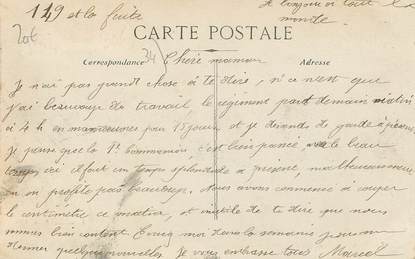 149 et la fuite
le bonjour à tout le
monde
206
CARTE POSTALE
Correspondance
Adresse
24
Chère maman
Je n'ai pas grand chose à te dire, si ce n'est que
j'ai beaucoup de travail, le régiment part demain matin
à 4 h en manœuvres pour 15 jours et je
Je pense que la 1re communion, c'est bien passé, le beau
temps ici il fait un temps splendide à présent, malheureusement
on en profite pas beaucoup. Nous avons commencé à couper
le centimètre ce matin, et inutile de te dire que nous
sommes bien content. moi dans la semaine pour me
donner quelques nouvelles. Je vous embrasse tous Marcel